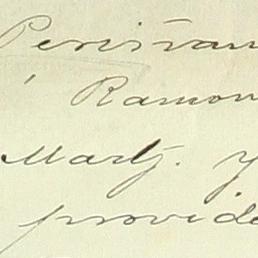 Perisvan
Ramon
Martz. y
provide